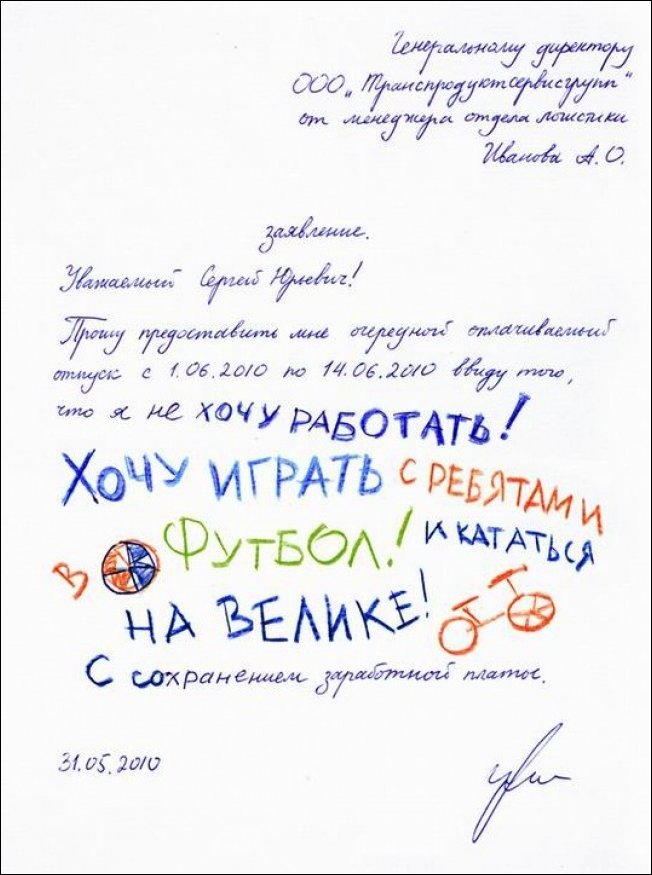 Генеральному директору
ООО „Транспродуктсервисгрупп“
от менеджера отдела логистики
Иванова А.О.
заявление.
Уважаемый Сергей Юрьевич!
Прошу предоставить мне очередной оплачиваемый
отпуск с 1.06.2010 по 14.06.2010 ввиду того,
что я не ХОЧУ РАБОТАТЬ!
ХОЧУ ИГРАТЬ С РЕБЯТАМИ
В ФУТБОЛ! И КАТАТЬСЯ
НА ВЕЛИКЕ!
С сохранением заработной платы.
31.05.2010